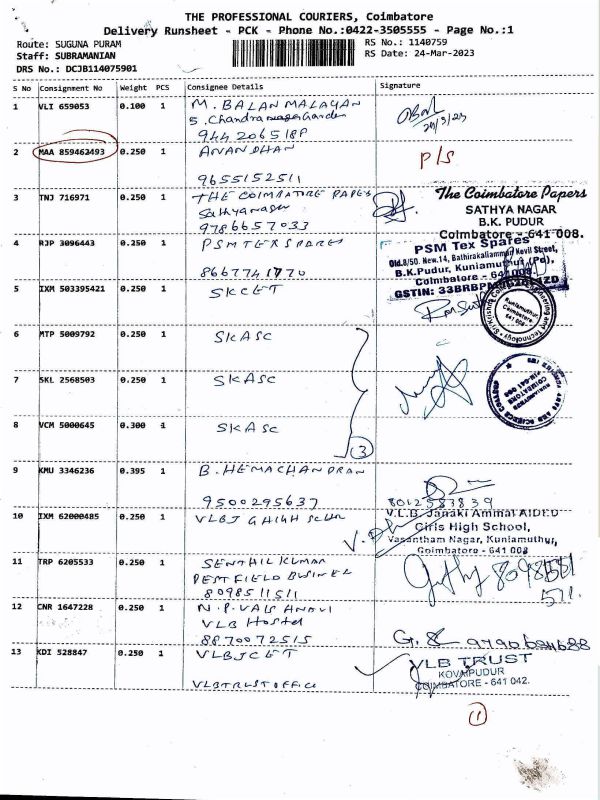 THE PROFESSIONAL COURIERS, Coimbatore
Delivery Runsheet - PCK - Phone No.:0422-3505555 - Page No.:1
Route: SUGUNA PURAM
RS No.: 1140759
Staff: SUBRAMANIAN
RS Date: 24-Mar-2023
DRS No.: DCJB114075901
S No Consignment No Weight PCS Consignee Details Signature
1 VLI 659053 0.100 1 M. BALAN MALAYAN
5. Chandranagar Garden
944206518P
29/3/23
2 MAA 859462493 0.250 1 ANANDHAN
9655152511
P/S
3 TNJ 716971 0.250 1 THE COIMBATORE PAPES
Sathyanagar
9786657033
The Coimbatore Papers
SATHYA NAGAR
B.K. PUDUR
Coimbatore - 641 008.
4 RJP 3096443 0.250 1 PSM TEX SPARES
8667741770
PSM Tex Spares
Old.8/50. New.14, Bathirakaliamman Kovil Street,
B.K.Pudur, Kuniamuthur (Po),
Coimbatore - 641 008
5 IXM 503395421 0.250 1 SKCET
Kuniamuthur,
Coimbatore
641 008
6 MTP 5009792 0.250 1 SKASC
7 SKL 2568503 0.250 1 SKASC
8 VCM 5000645 0.300 1 SKASC
3
9 KMU 3346236 0.395 1 B. HEMACHANDRAN
9500295637
8012583839
10 IXM 62000485 0.250 1 VLBJ G HIGH
V.L.B. Janaki Ammal AIDED
Girls High School,
Vasantham Nagar, Kuniamuthur,
Coimbatore - 641 008
11 TRP 6205533 0.250 1 SENTHIL KUMAR
PEST FIELD
8098511511
8098551
511.
12 CNR 1647228 0.250 1 N.P. VAISHNAVI
VLB Hostel
8870072515
13 KDI 528847 0.250 1 VLBJCET
VLB TRUST OFFICE
VLB TRUST
KOVAIPUDUR
COIMBATORE - 641 042.
1